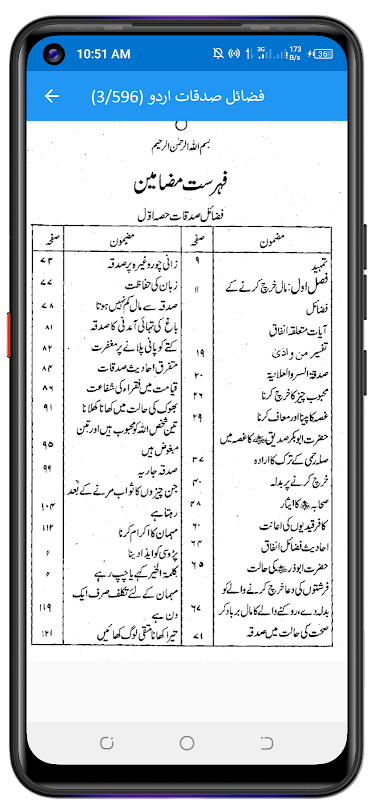 10:51 AM
3G
173 B/s
36
فضائل صدقات اردو (3/596)
بسم اللہ الرحمن الرحیم
فہرست مضامین
فضائل صدقات حصہ اوّل
مضمون صفحہ
تمہید ۹
فصل اول: مال خرچ کرنے کے ۱۱
فضائل
آیات متعلقہ انفاق
تفسیر من و اذیٰ ۱۹
صدقۃ السر و العلانیۃ ۲۰
محبوب چیز کا خرچ کرنا ۲۶
غصہ کا پینا اور معاف کرنا ۲۹
حضرت ابوبکر صدیق کا غصہ میں
صلہ رحمی کے ترک کا ارادہ ۳۷
خرچ کرنے پر بدلہ ۴۰
صحابہ کا ایثار ۴۸
کافر قیدیوں کی اعانت ۶۰
احادیث فضائل انفاق ۶۴
حضرت ابوذر کی حالت ۶۵
فرشتوں کی دعا خرچ کرنے والے کو
بدلہ دے، روکنے والے کا مال برباد کر ۶۷
صحت کی حالت میں صدقہ ۷۱
مضمون صفحہ
زانی چور وغیرہ پر صدقہ ۷۳
زبان کی حفاظت ۷۷
صدقہ سے مال کم نہیں ہوتا ۷۸
باغ کی تہائی آمدنی کا صدقہ ۸۱
کتے کو پانی پلانے پر مغفرت ۸۲
متفرق احادیث صدقات ۸۴
قیامت میں فقراء کی شفاعت ۸۶
بھوک کی حالت میں کھانا کھلانا ۹۱
تین شخص اللہ کو محبوب ہیں اور تین
مبغوض ہیں ۹۵
صدقہ جاریہ ۹۹
جن چیزوں کا ثواب مرنے کے بعد
رہتا ہے ۱۰۴
مہمان کا اکرام کرنا ۱۱۲
پڑوسی کو ایذا دینا
کلمۃ الخیر کہے یا چپ رہے
مہمان کے لئے تکلف صرف ایک
دن ہے ۱۱۹
تیرا کھانا متقی لوگ کھائیں ۱۲۱